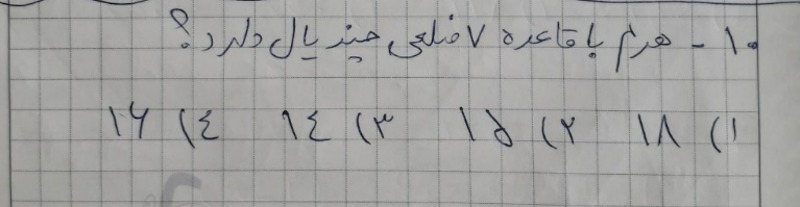 ۱۰- هرم با قاعده ۷ ضلعی چند یال دارد؟
۱) ۱۸ ۲) ۱۵ ۳) ۱۴ ۴) ۱۶